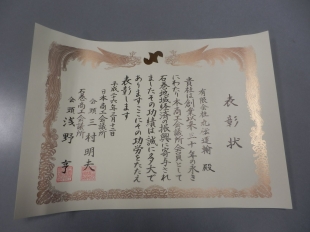 表彰状
有限会社丸吉運輸 殿
貴社は創業以来三十年の永き
にわたり本商工会議所会員として
石巻地域経済の振興に寄与され
ましたその功績は誠に多大で
ありますここにその功労をたたえ
表彰します
平成二十六年三月二十二日
日本商工会議所
会頭 三村明夫
石巻商工会議所
会頭 浅野 亨